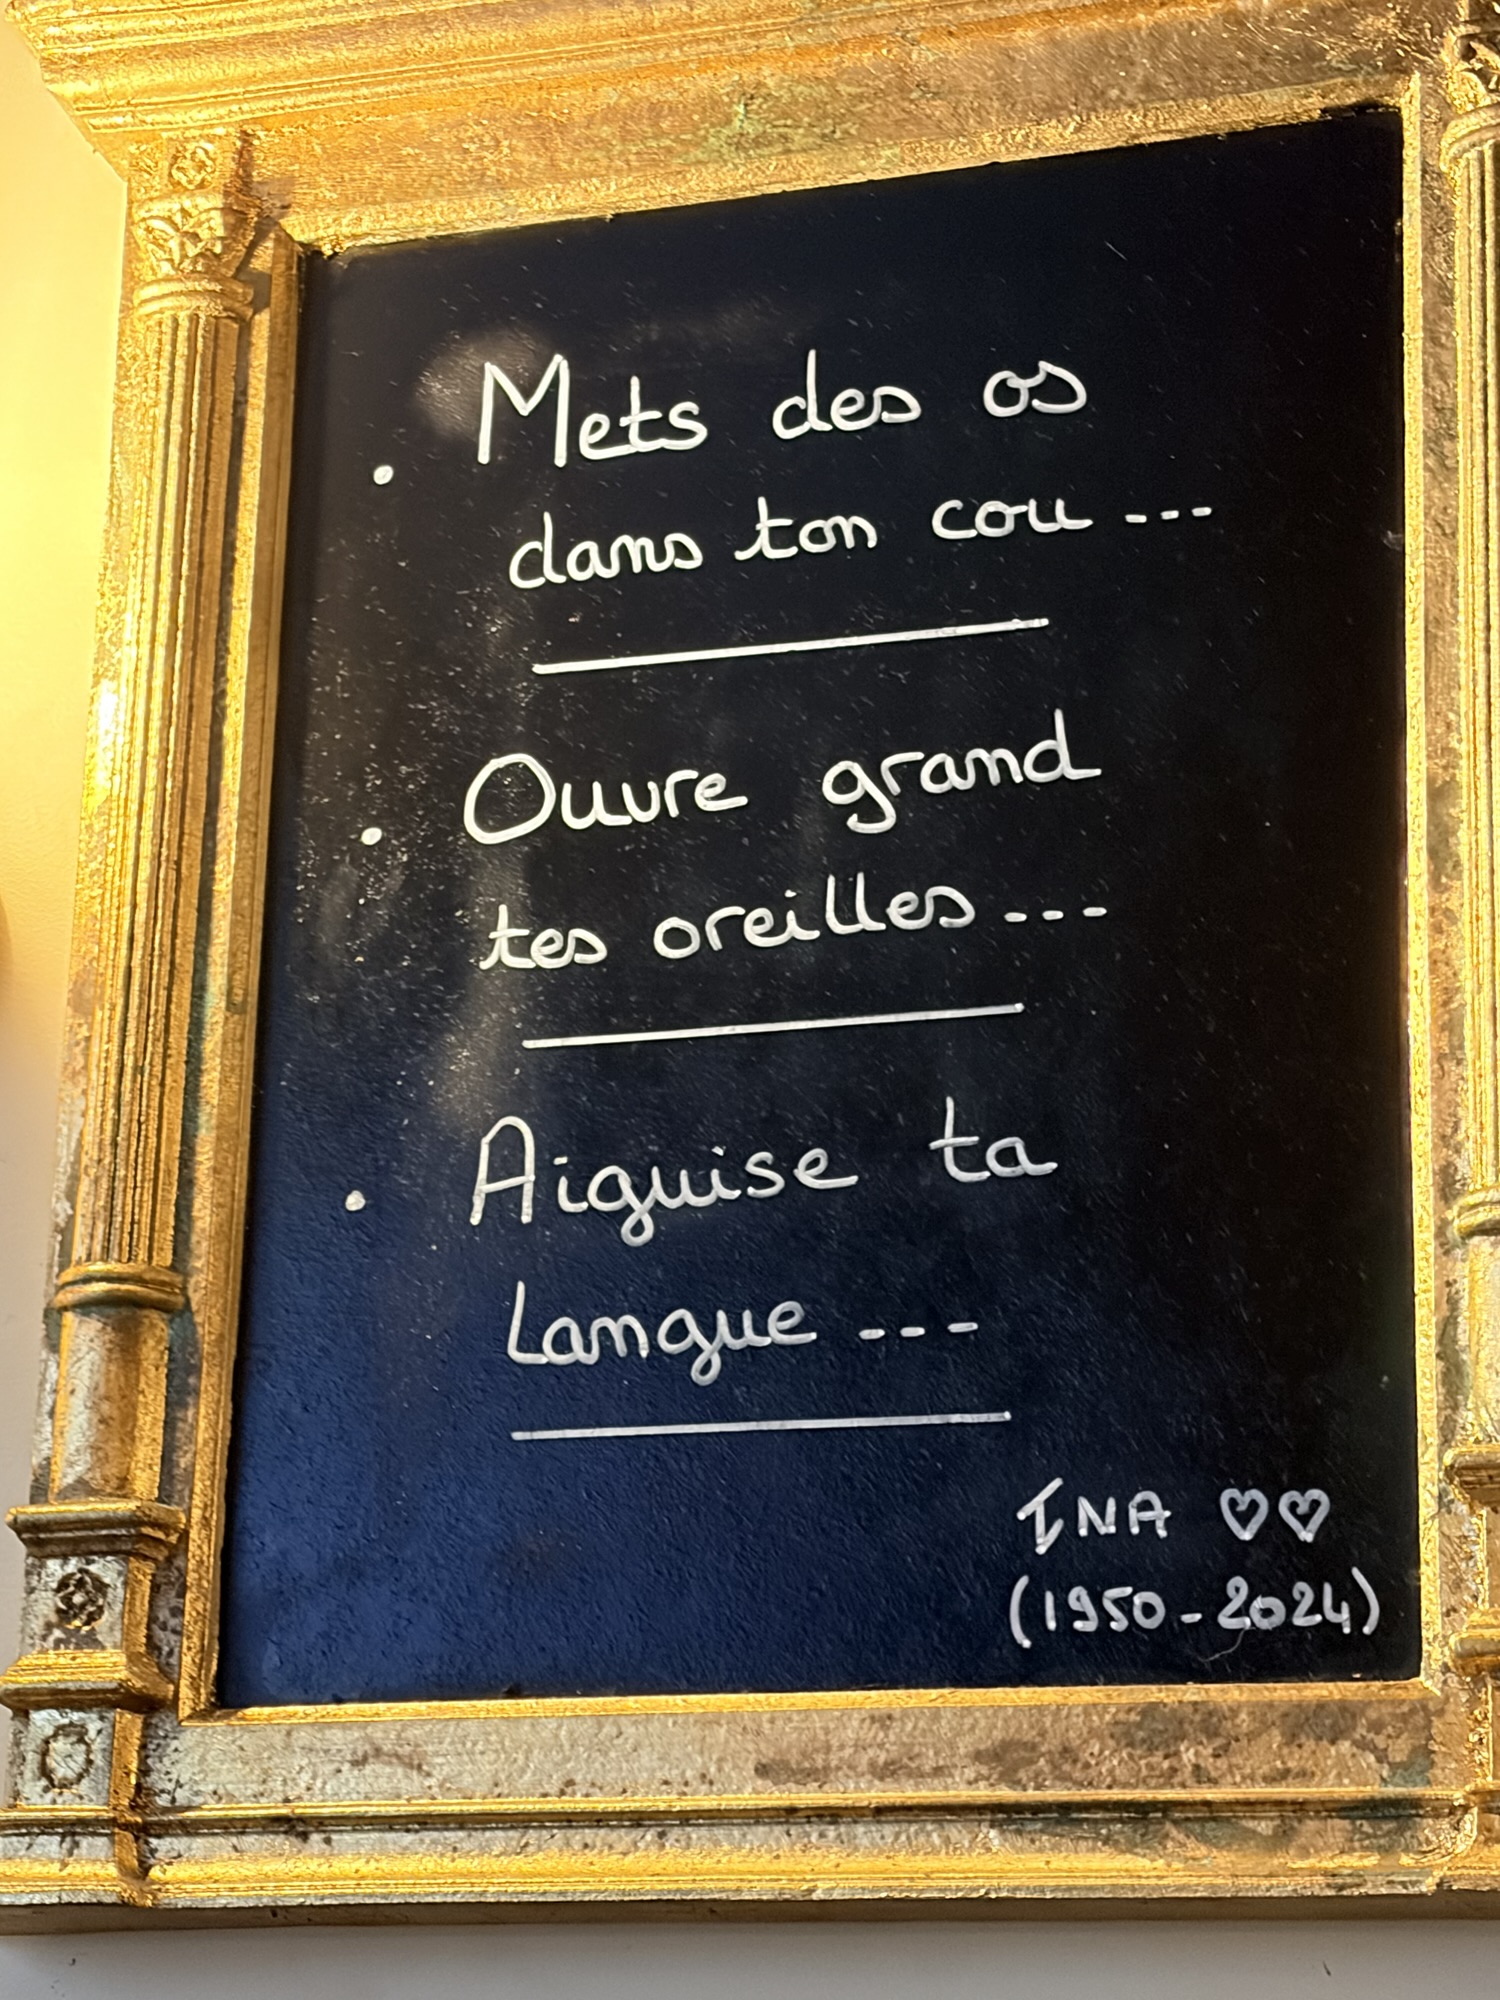 . Mets des os
dans ton cou ---
. Ouvre grand
tes oreilles ---
. Aiguise ta
Langue ---
INA ♡♡
(1950-2024)